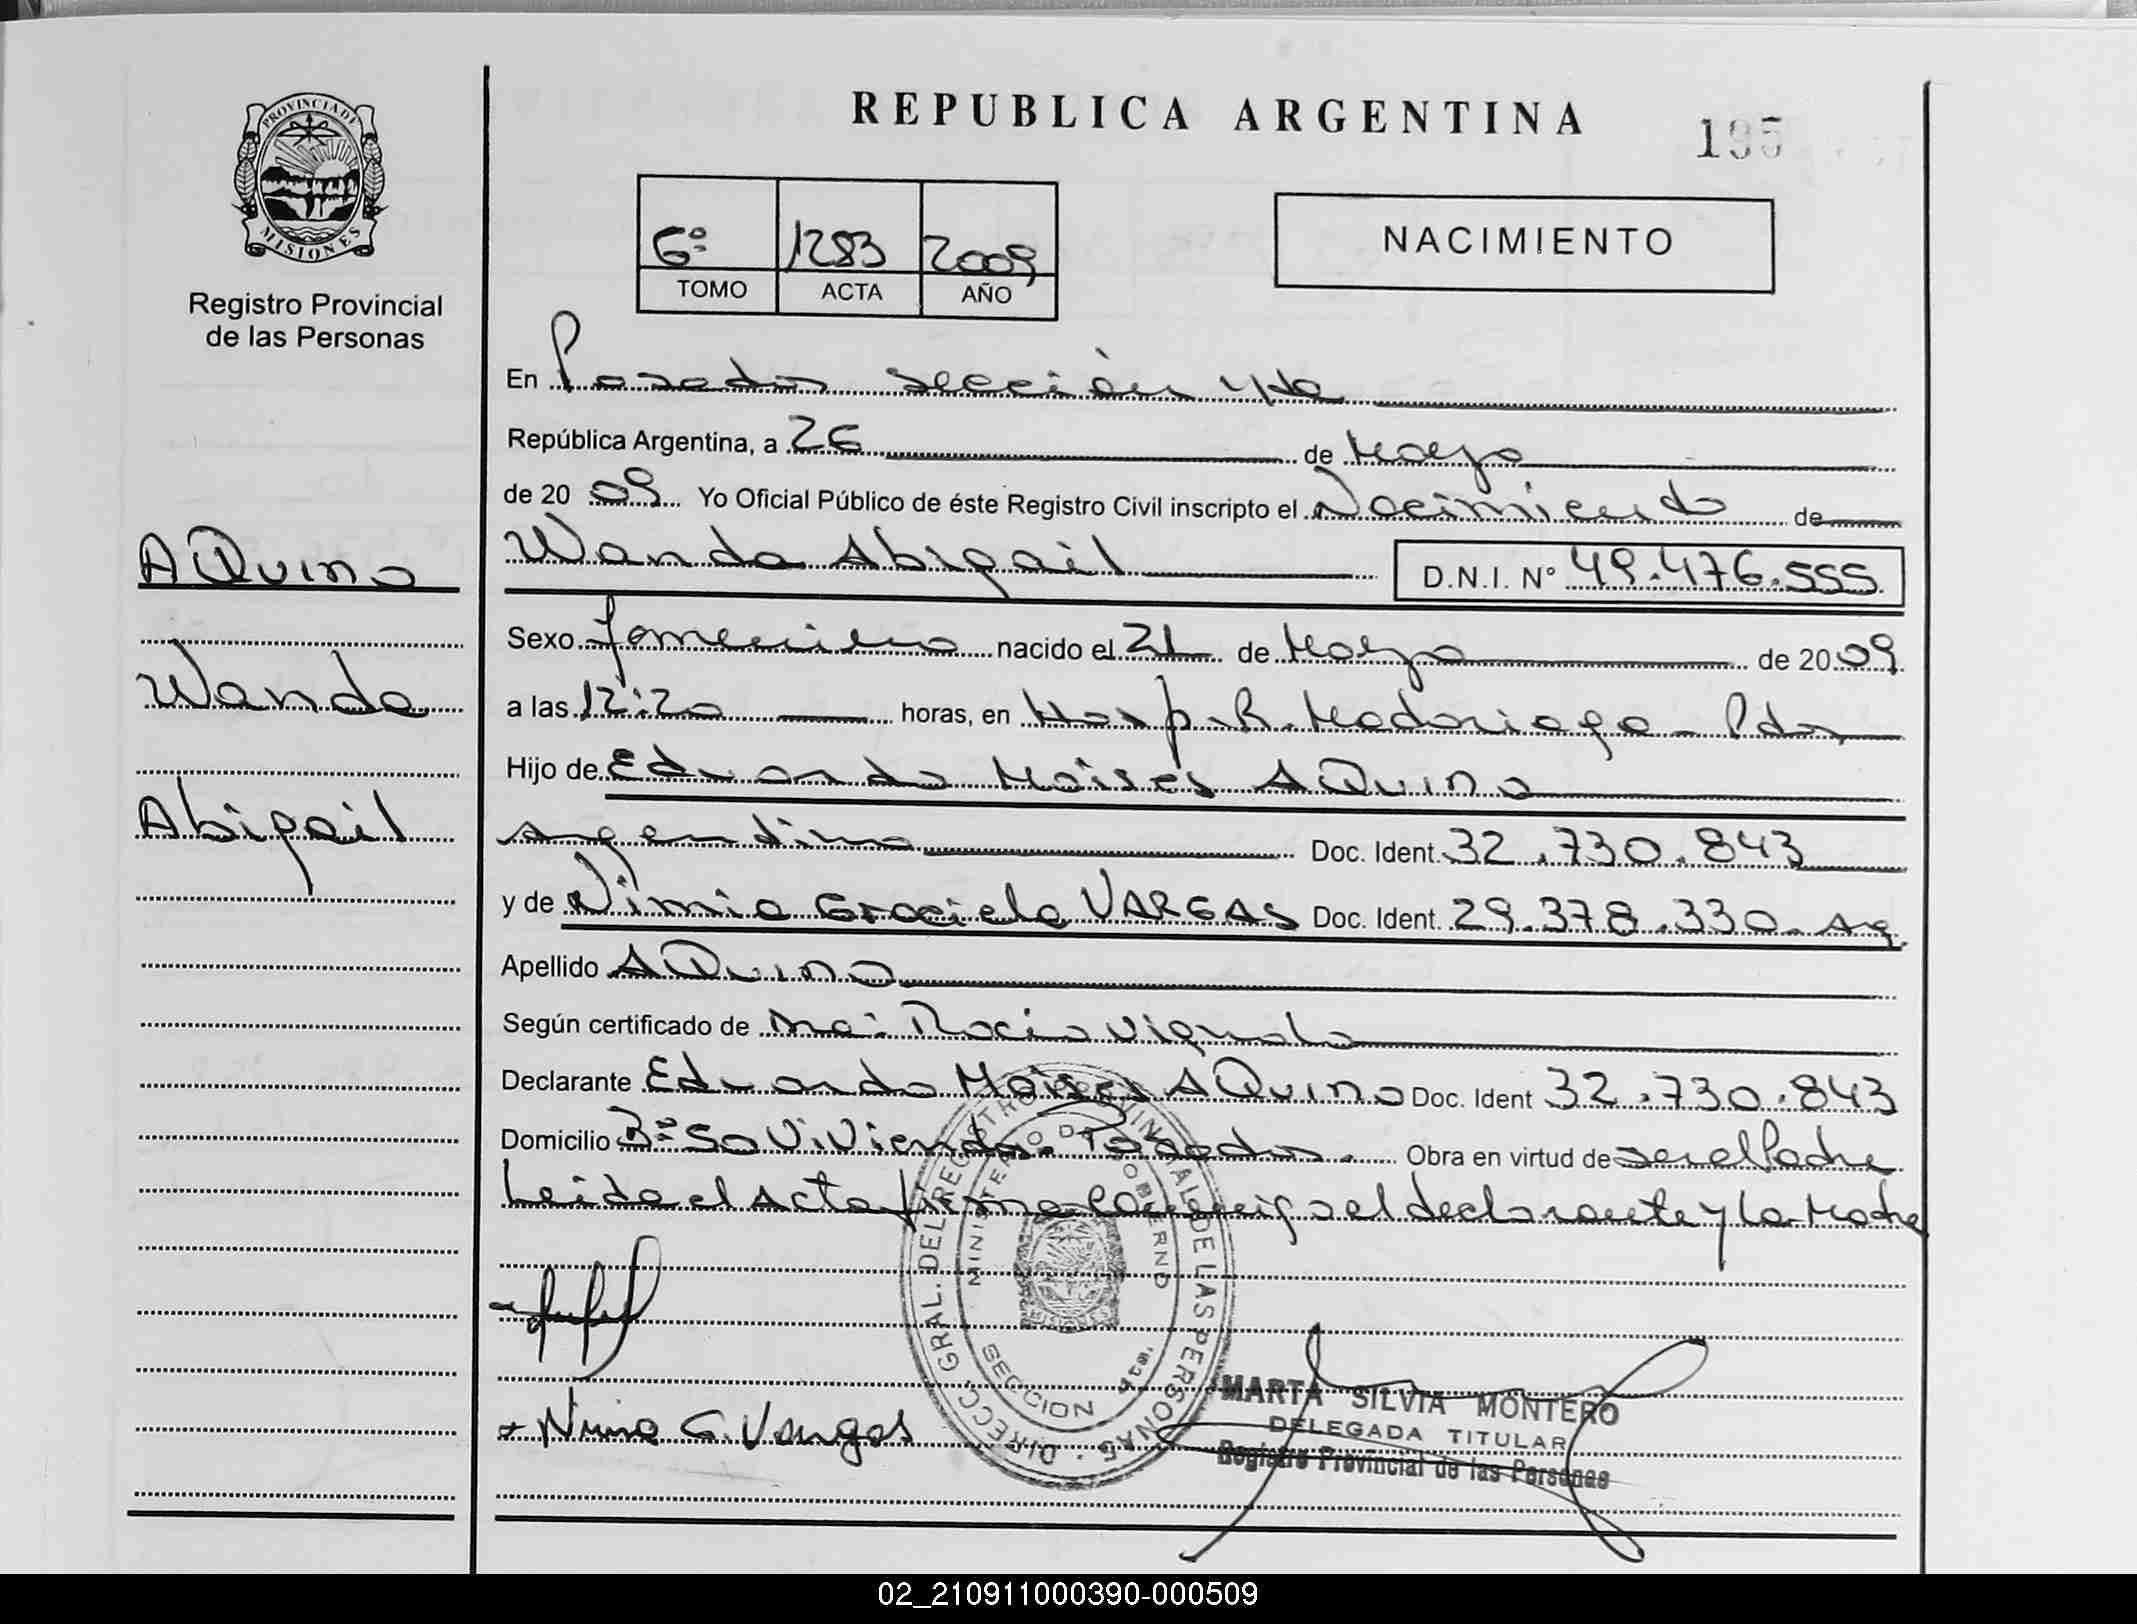 REPUBLICA ARGENTINA
195
PROVINCIA DE MISIONES
Registro Provincial
de las Personas
6º 1283 2009
TOMO ACTA AÑO
NACIMIENTO
En Posadas sección 4ta
República Argentina, a 26 de Mayo
de 20 09 Yo Oficial Público de éste Registro Civil inscripto el Nacimiento de
Wanda Abigail D.N.I. Nº 49.476.555
AQuino
Wanda
Abigail
Sexo femenino nacido el 21 de Mayo de 2009
a las 12:20 horas, en Hosp. R. Madariaga - Pdas
Hijo de Eduardo Moises AQuino
Argentino Doc. Ident. 32.730.843
y de Nimia Graciela VARGAS Doc. Ident. 29.378.330. Arg.
Apellido AQuino
Según certificado de Ma: Rocio Vignolo
Declarante Eduardo Moises AQuino Doc. Ident 32.730.843
Domicilio Bº 50 Viviendas. Posadas. Obra en virtud de ser el Padre
Leida el Acta firma conmigo el declarante y la Madre
DIRECC. GRAL. DEL REGISTRO PROVINCIAL DE LAS PERSONAS
MINISTERIO DE GOBIERNO
SECCION 4ta.
Nimia G. Vargas
MARTA SILVIA MONTERO
DELEGADA TITULAR
Registro Provincial de las Personas
02_210911000390-000509